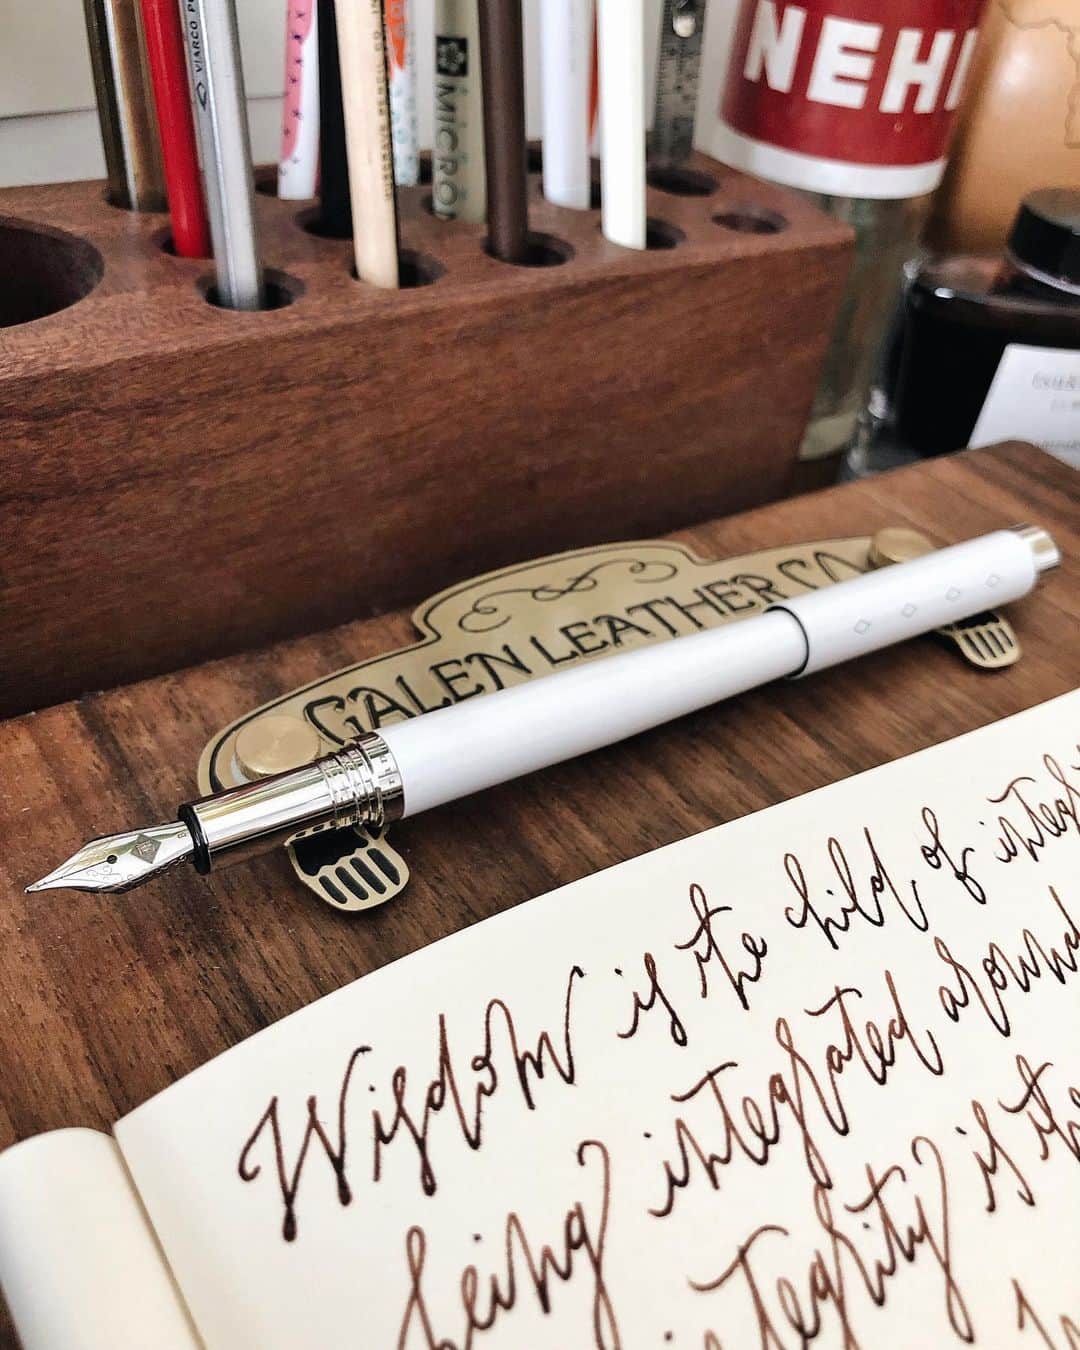 VIARCO
MICRON
NEHI
GALEN LEATHER CO
Wisdom is the child of
being integrated around
integrity is the